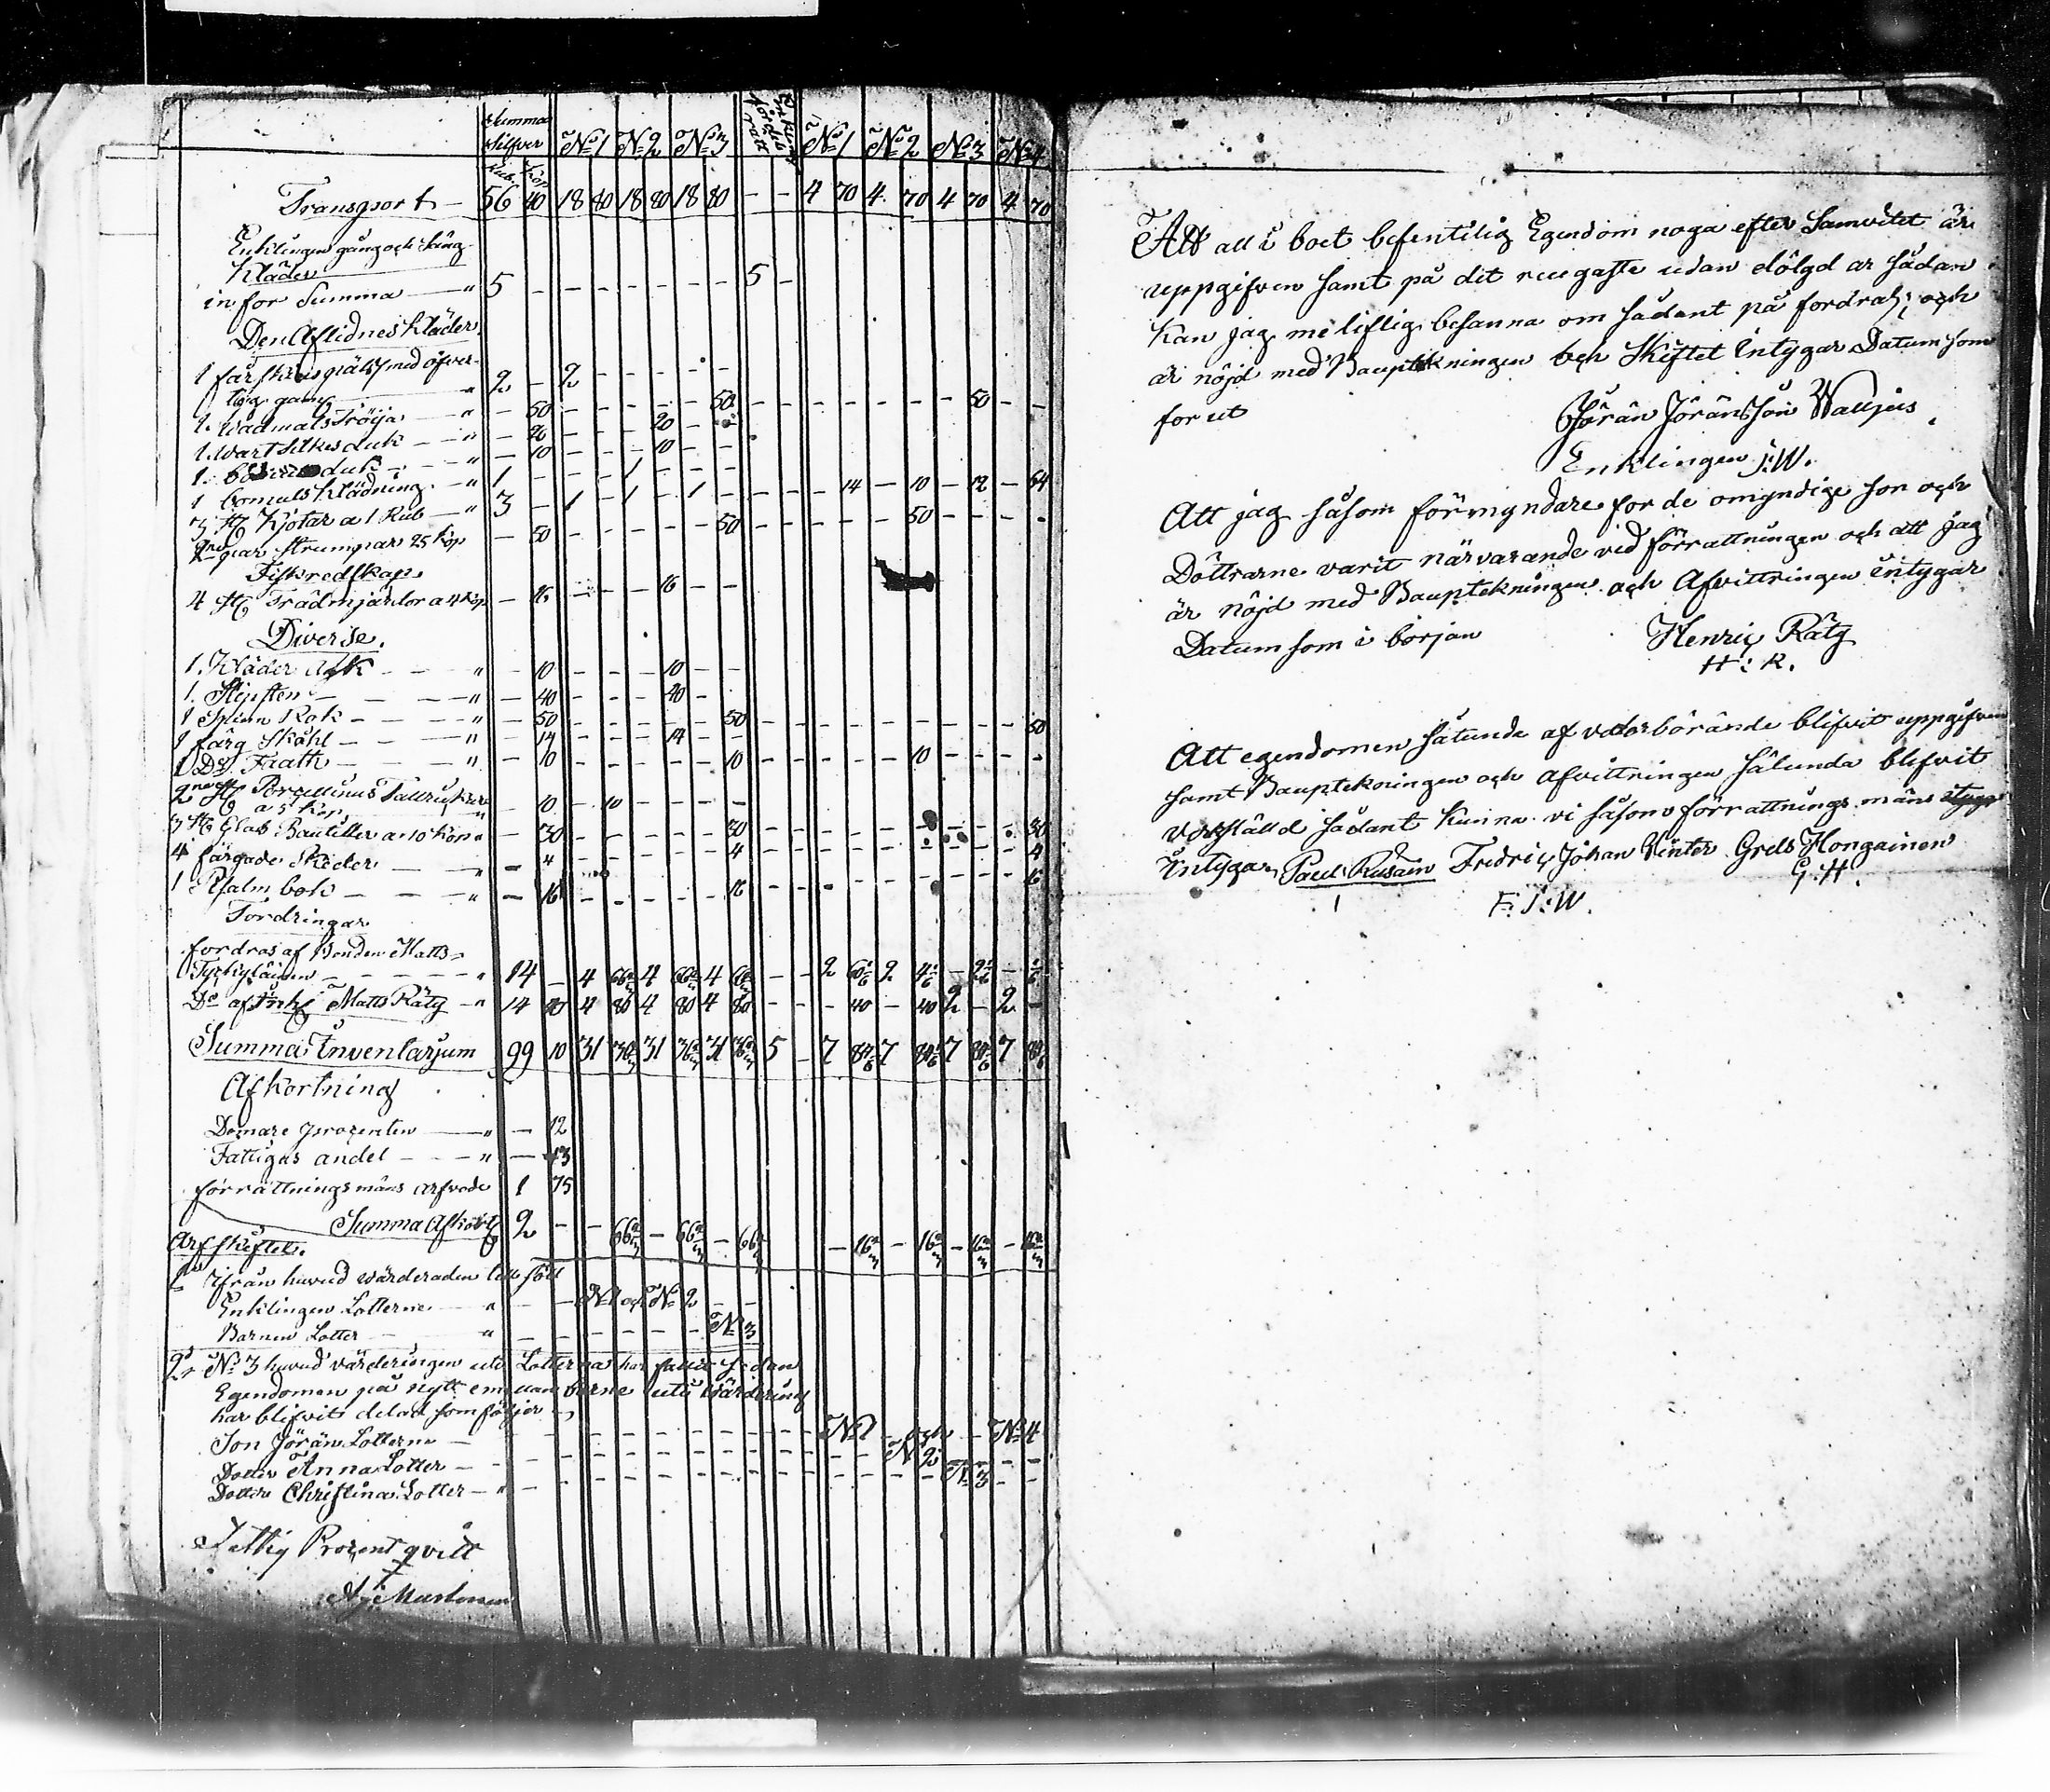 Summa Silfver Rub. Kop N:o 1 N:o 2 N:o 3 N:o 1 N:o 2 N:o 3 N:o 4
Transport — 56 40 18 80 18 80 18 80 — — 4 70 4 70 4 70 4 70
Enklingen gång och Säng
Kläder
in for Summa — " 5 — — — — — — — 5 —
Den Aflidnes Kläder.
1 får skins päls med öfver
tyg gam — " 2 — 2 — — — — —
1. wadmals Tröija — " — 50 — — — — — 50 — — — — — — — 50 — —
1. Swart Silkes duk — " — 20 — — — 20 — —
1. duk — — " — 10 — — — 10 — —
1 Comuls Klädning — " 1 — — — 1 — — —
3 St Kjolar a 1 Rub — " 3 — 1 — 1 — 1 — — — — 14 — 10 — 12 — 64
par Strumpor 25 Kop — 50 — — — — — 50 — — — — — 50 — — — —
Fiskredskap
4 St Trådmjärdor a 4 Kop — 16 — — — 16 — —
Diverse.
1. Kläder Ask — — " — 10 — — — 10 — —
1. Slipsten — — — " — 40 — — — 40 — —
1 Spinn Rok — — — " — 50 — — — — — 50 — — — — — — — — — 50
1 färg Skåhl — — — " — 14 — — — 14 — —
1 D:o Faath — — — " — 10 — — — — — 10 — — — — — 10 — — — —
2 St Porcellinus Tallrickar
a 5 Kop. " — 10 — 10 — — — —
3 St Glas Bautiller a 10 Kop " — 30 — — — — — 30 — — — — — — — — — 30
4 färgade Skedar — " — 4 — — — — — 4 — — — — — — — — — 4
1 Psalm bok — — — " — 16 — — — — — 16 — — — — — — — — — 16
Fordringar
fordras af Bonden Matts
— — — — — " 14 — 4 66 2/3 4 66 2/3 4 66 2/3 — — 2
D:o af Matts Rätÿ — " 14 40 4 80 4 80 4 80 — — — 40 — 40 2 — 2 —
Summa Inventarjum 99 10 31 36 2/3 31 36 2/3 31 36 2/3 5 — 7 7 7 7
Afkortning
Domare prozenten — " — 12
Fattigas andel — — " — 13
förrättnings mäns arfvode 1 75
Summa Afkort 2 — — 66 2/3 — 66 2/3 — 66 2/3 — 16 2/3 — 16 2/3 — 16 2/3 — 16 2/3
Arfskiftet.
ifrån huvud wärderaden
Enklingen Lotterne — " — — N:o 1 och N:o 2 — —
Barnen Lotter — " — — — — — — — N:o 3
2:o N:o 3 huvud värderingen uti Lotterna har fallit sedan
Egendomen på nytt emellan barne uti wärdering
har blifvit delad som följer
Son Jörän Lotterne — N:o 1 och N:o 4
Dotter Anna Lotter — N:o 2
Dotter Christina Lotter — " — N:o 3
Fattig Prozent qvitt
Mustonen
Att all i boet befintilig Egendom noga efter Samvetet är
uppgifven samt på dit utan dölgd ar sådan
Kan jag me liflig besanna om sådant på fordras; och
är nöjd med Bauptekningen och Skiftet Intygar Datum som
for ut Jörän Jöränsson Walljus
Enklingen J:W.
Att jag såsom förmyndare for de omyndige son och
Döttrarne varit närvarande vid förrattningen och att jag
är nöjd med Bauptekningen och Afvittringen intygar
Datum som i början Henric Rätÿ
H:R.
Att egendomen sålunda af vedorbörande blifvit uppgifven
samt Bauptekningen och afvittringen sålunda blifvit
värkställd sådant kunna vi såsom förrattnings mäns
Intyga. Paul Rusain Fredric Johan Vinter Grels Hongainen
F:J:W. G.H.